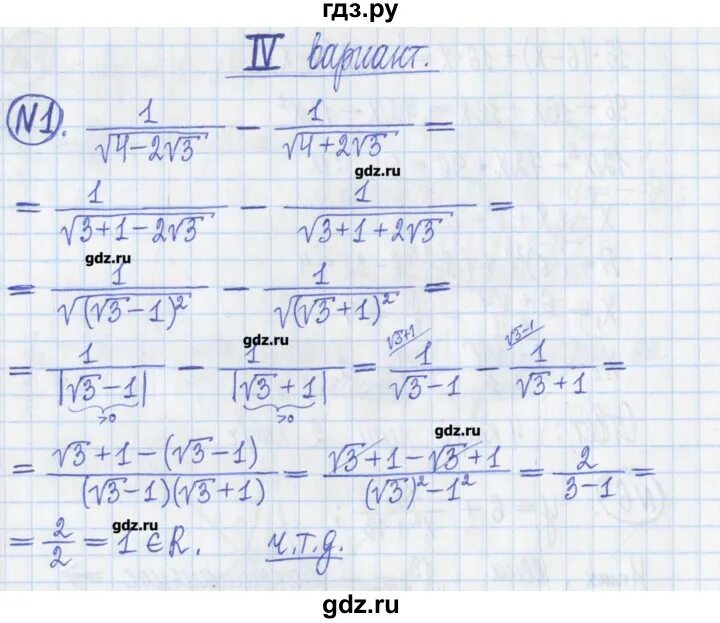 гдз.ру
IV вариант.
N1. 1/√(4-2√3) - 1/√(4+2√3) =
gdz.ru
= 1/√(3+1-2√3) - 1/√(3+1+2√3) =
gdz.ru
= 1/√((√3-1)²) - 1/√((√3+1)²) =
gdz.ru
= 1/|√3-1| - 1/|√3+1| = √3+1 1/(√3-1) - √3-1 1/(√3+1) =
>0 >0
gdz.ru
= (√3+1-(√3-1))/((√3-1)(√3+1)) = (√3+1-√3+1)/((√3)²-1²) = 2/(3-1) =
gdz.ru
= 2/2 = 1 ∈ R. ч.т.д.
gdz.ru